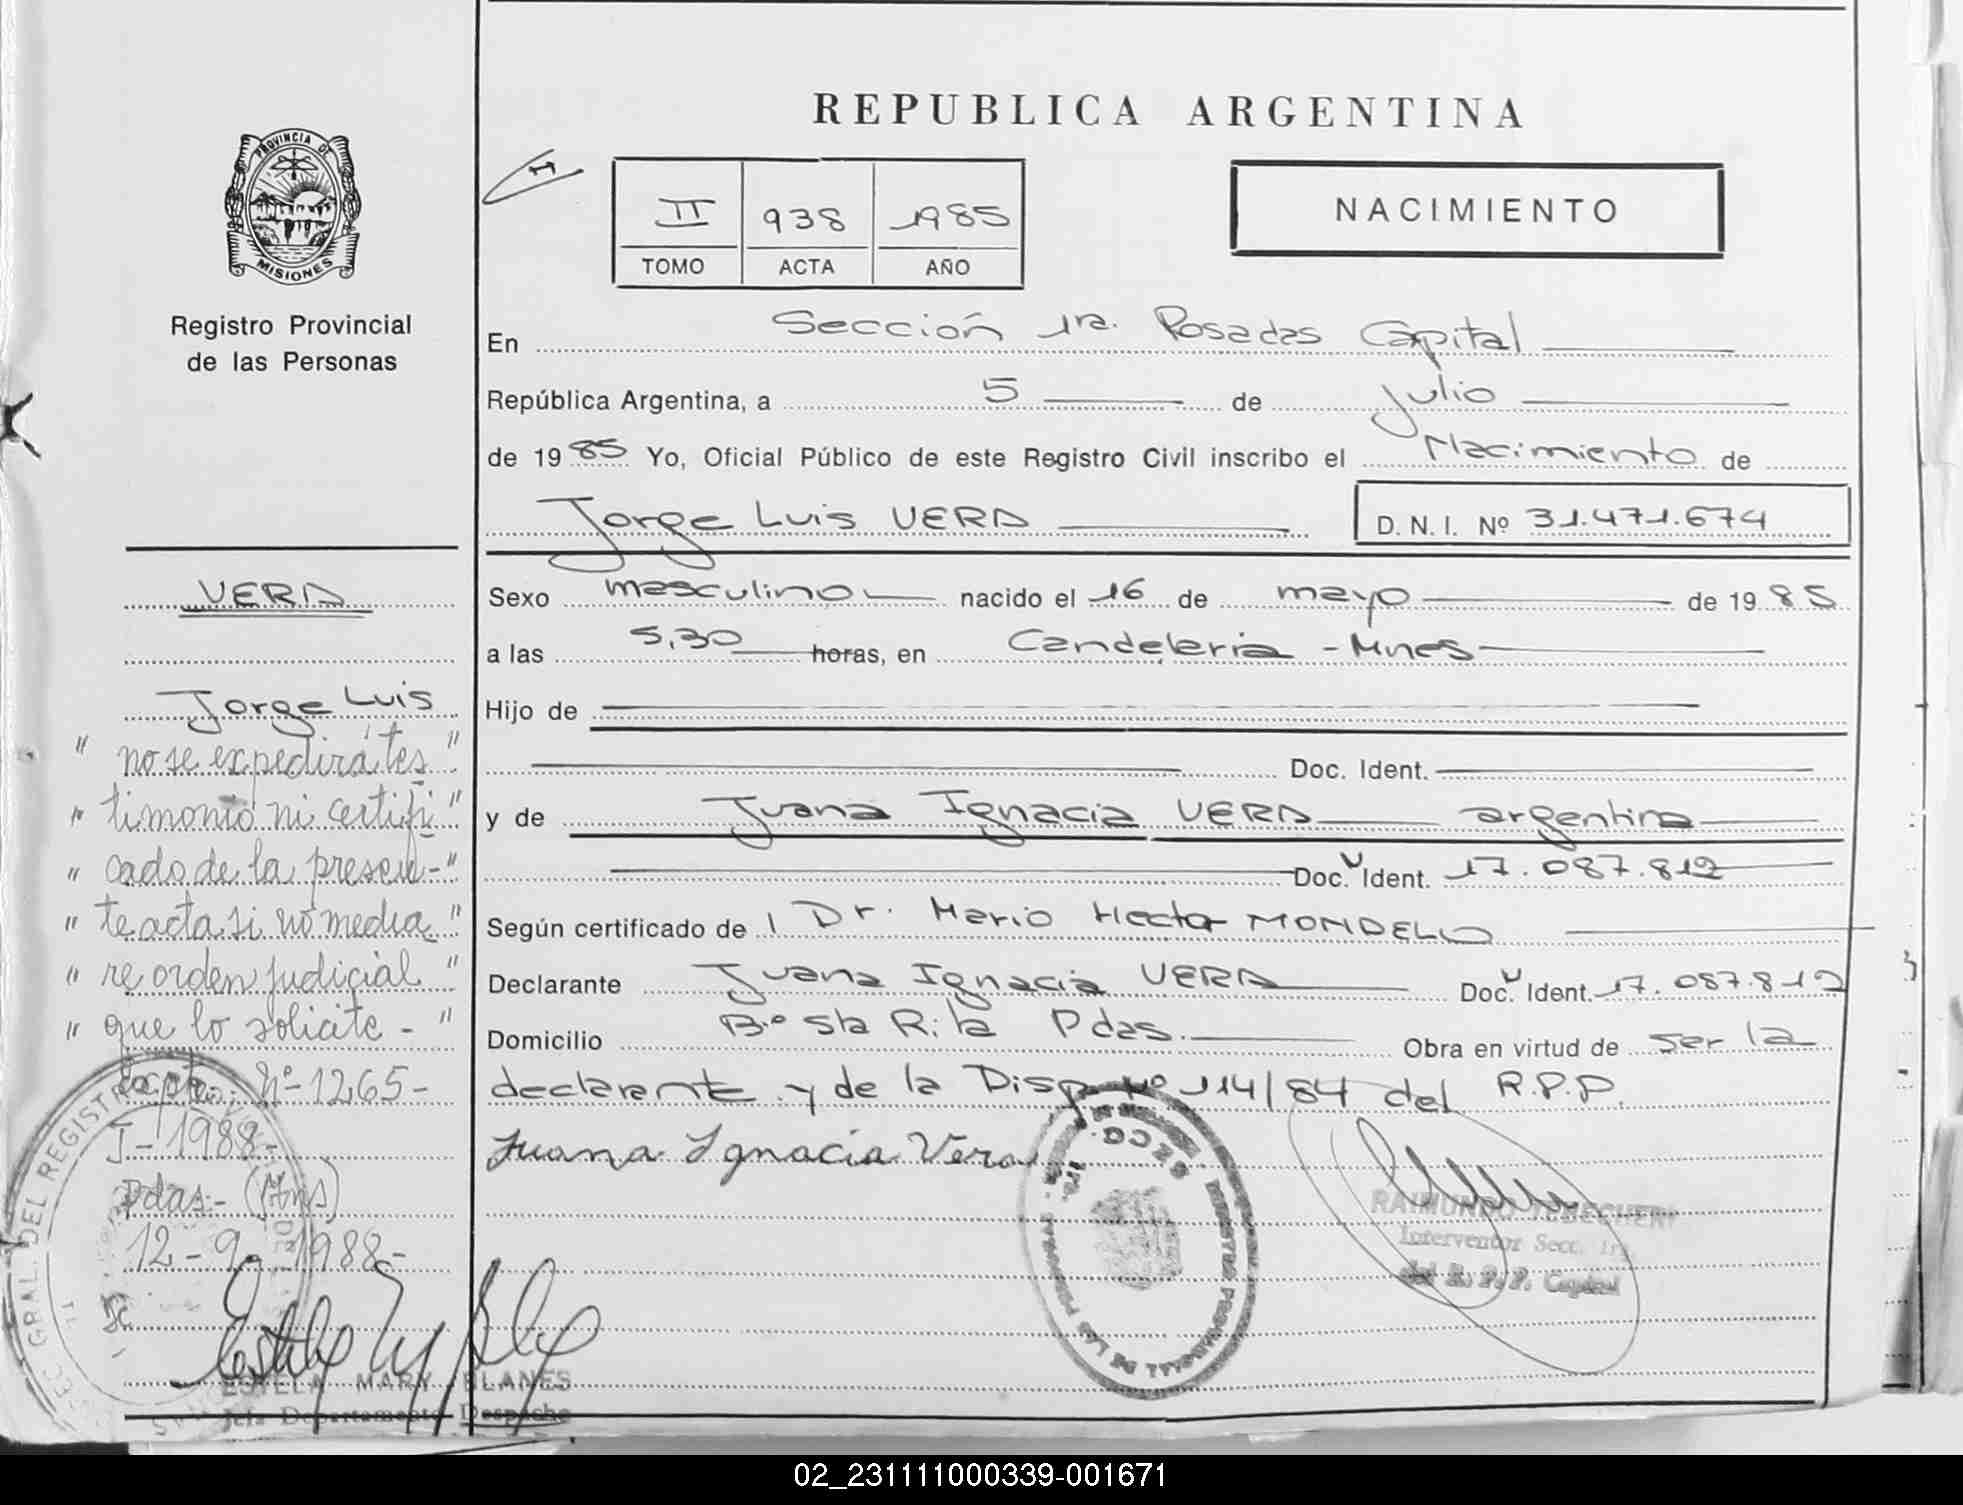 REPUBLICA ARGENTINA
PROVINCIA DE
MISIONES
Registro Provincial
de las Personas
II 938 1985
TOMO ACTA AÑO
NACIMIENTO
En Sección 1ra. Posadas Capital
República Argentina, a 5 de Julio
de 1985 Yo, Oficial Público de este Registro Civil inscribo el Nacimiento de
Jorge Luis VERA D.N.I. Nº 31.471.674
Sexo masculino nacido el 16 de mayo de 1985
a las 5,30 horas, en Candelaria - Mnes
Hijo de
Doc. Ident.
y de Juana Ignacia VERA argentina
Doc. Ident. 17.087.812
Según certificado de Dr. Mario Hector MONDELO
Declarante Juana Ignacia VERA Doc. Ident. 17.087.812
Domicilio Bº Sta Rita Pdas. Obra en virtud de ser la
declarante y de la Disp. Nº 114/84 del R.P.P.
Juana Ignacia Vera
RAIMUNDO
Interventor Secc. 1ra.
del R. P. P. Capital
VERA
Jorge Luis
" no se expedirá tes "
" timonio ni certifi "
" cado de la presen- "
" te acta si no media "
" re orden judicial "
" que lo solicite - "
Expte. Nº 1265-
J-1988-
Pdas.- (Mns)
12-9-1988-
ESTELA MARY BLANES
Jefa Departamento Despacho
02_231111000339-001671